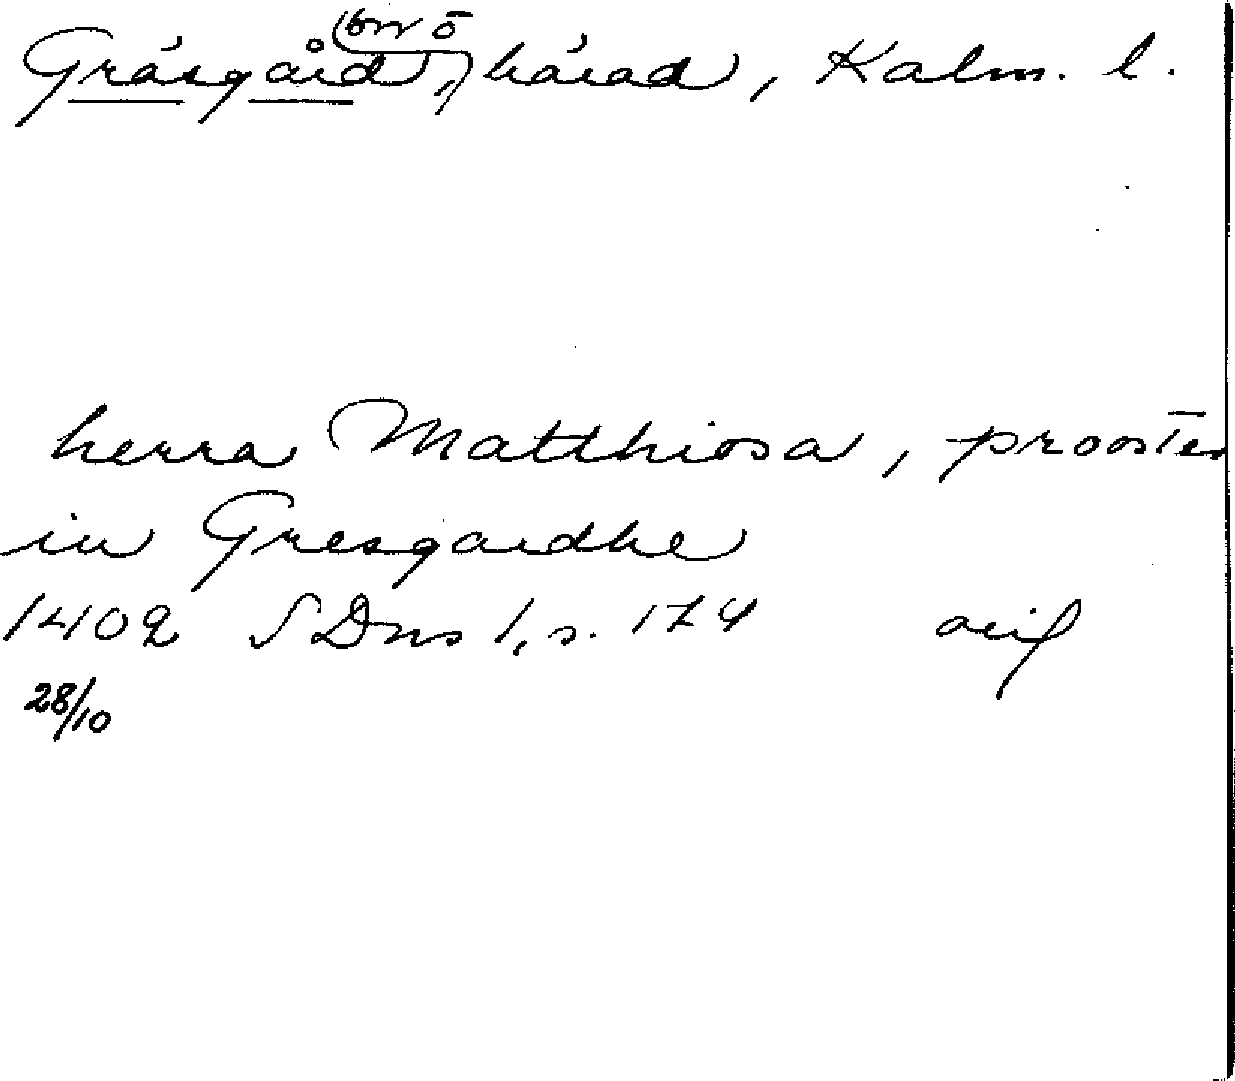 Gräsgård, härad, Kalm. l.
herra Matthiosa, prooste
in Gresgardhe
1402 SDns 1, s. 174 avif
28/10